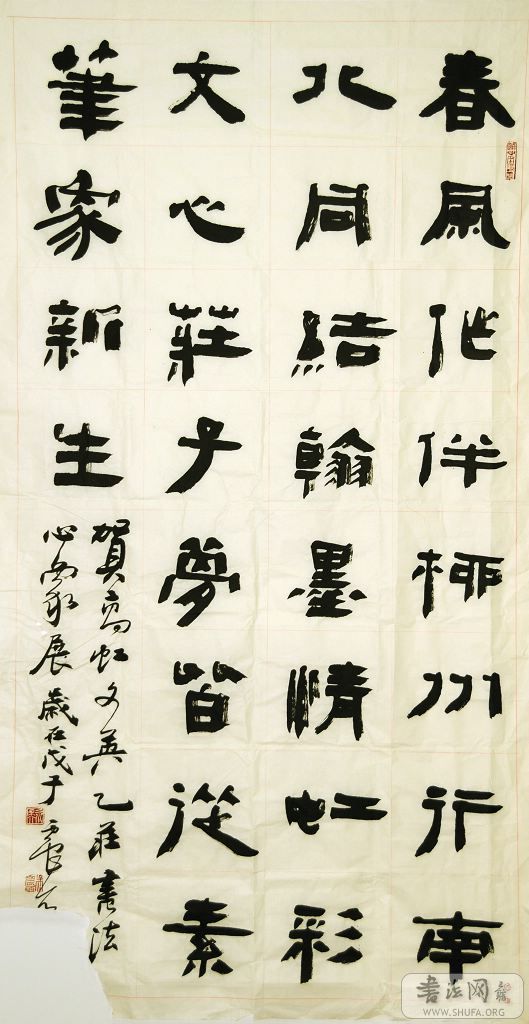 春風作伴柳州行南
北同結翰墨情虹彩
文心莊子夢皆從素
筆象新生
賀高虹文英乙莊書法
心象展歲在戊子
書法网
WWW.SHUFA.ORG